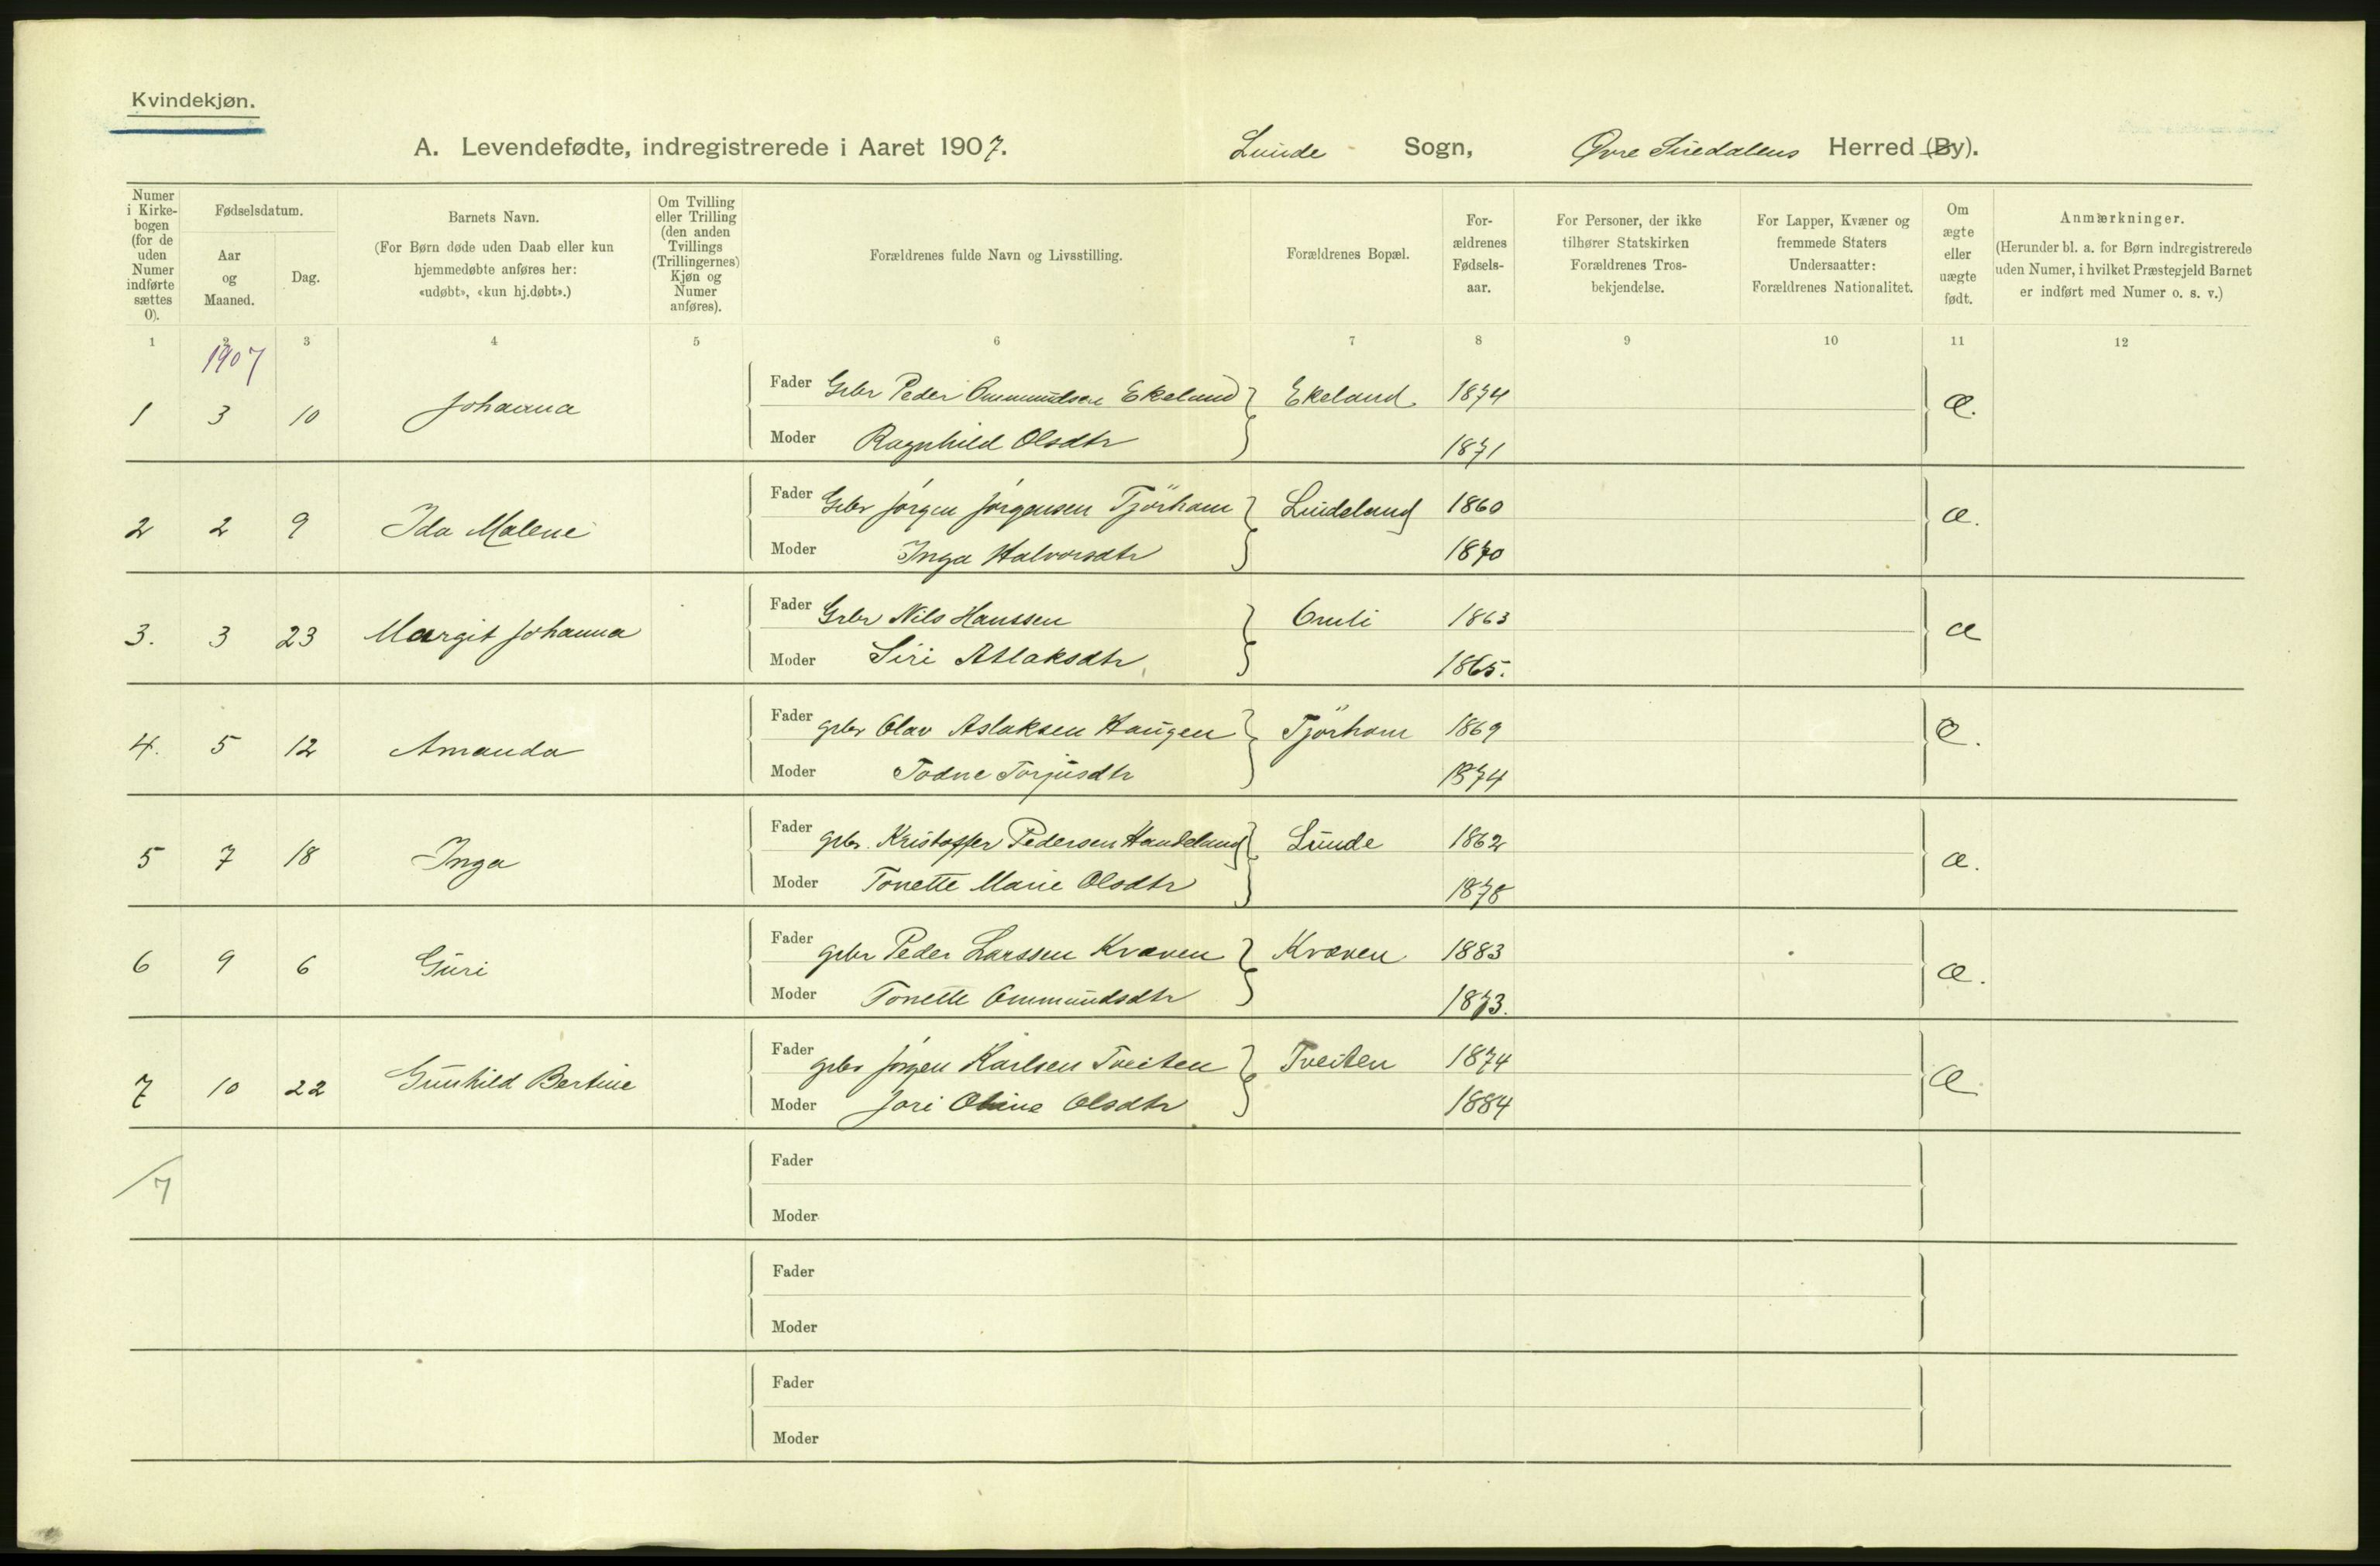 Kvindekjøn.
A. Levendefødte, indregistrerede i Aaret 1907. Lunde Sogn, Øvre Siredalens Herred (By).
Numer i Kirkebogen (for de uden Numer indførte sættes 0).
Fødselsdatum.
Aar og Maaned.
Dag.
Barnets Navn.
(For Børn døde uden Daab eller kun hjemmedøbte anføres her: «udøbt», «kun hj.døbt».)
Om Tvilling eller Trilling (den anden Tvillings (Trillingernes) Kjøn og Numer anføres).
Forældrenes fulde Navn og Livsstilling.
Forældrenes Bopæl.
For-ældrenes Fødsels-aar.
For Personer, der ikke tilhører Statskirken Forældrenes Tros-bekjendelse.
For Lapper, Kvæner og fremmede Staters Undersaatter: Forældrenes Nationalitet.
Om ægte eller uægte født.
Anmærkninger.
(Herunder bl. a. for Børn indregistrerede uden Numer, i hvilket Præstegjeld Barnet er indført med Numer o. s. v.)
1 2 3 4 5 6 7 8 9 10 11 12
1907
1 3 10 Johanna Fader Gbr Peder Ommundsen Ekeland Ekeland 1874 æ.
Moder Ragnhild Olsdtr 1871
2 2 9 Ida Malene Fader Gbr Jørgen Jørgensen Tjörhom Lindeland 1860 æ.
Moder Inga Halvorsdtr 1870
3. 3 23 Margit Johanna Fader Gbr Nils Hanssen Omli 1863 æ
Moder Siri Atlaksdtr 1865.
4. 5 12 Amanda Fader gbr Olav Aslaksen Haugen Tjörhom 1869 æ.
Moder Todne Torjusdtr 1874
5 7 18 Inga Fader gbr. Kristoffer Pedersen Haudeland Lunde 1862 æ.
Moder Tonette Marie Olsdtr 1878
6 9 6 Guri Fader gbr Peder Larssen Kvæven Kvæven 1883 æ.
Moder Tonette Ommundsdtr 1873.
7 10 22 Gunhild Bertine Fader gbr Jørgen Karlsen Tveiten Tveiten 1874 æ
Moder Jori Oline Olsdtr 1884
/7
Fader
Moder
Fader
Moder
Fader
Moder